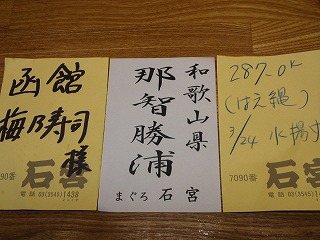 函館
梅乃寿司
様
7090番
石宮
電話 03(3545)1438
和歌山県
那智勝浦
まぐろ 石宮
287-OK
(はえ縄)
3/24 水揚す
7090番
石宮
電話 03(3545)14